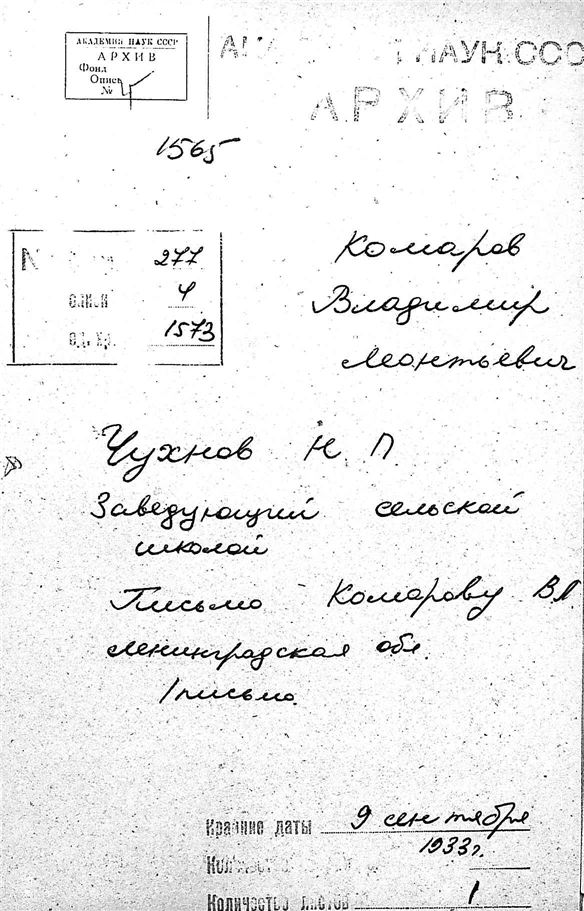 АКАДЕМИЯ НАУК СССР
АРХИВ
Фонд
Опись
№
НАУК СССР
АРХИВ
1565
277
опись 4
ед. хр. 1573
Комаров
Владимир
Леонтьевич
Чухнов Н П.
Заведующий сельской
школой
Письмо Комарову В Л.
Ленинградская обл.
1 письмо.
Крайние даты 9 сентября
1933 г.
Количество листов 1